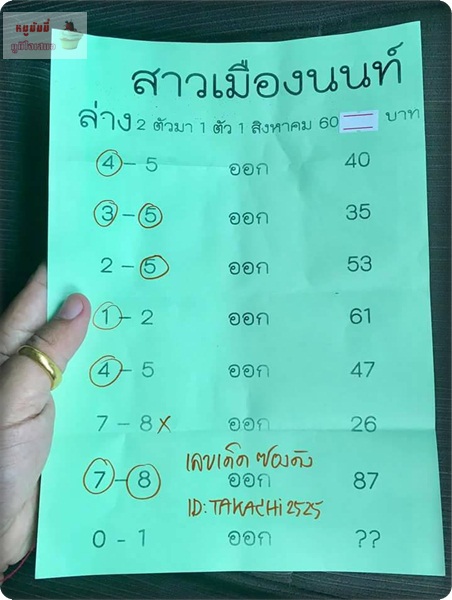 หมูมันมี่
สาวเมืองนนท์
ล่าง 2 ตัวมา 1 ตัว 1 สิงหาคม 60 บาท
4 - 5 ออก 40
3 - 5 ออก 35
2 - 5 ออก 53
1 - 2 ออก 61
4 - 5 ออก 47
7 - 8 X ออก 26
เลขเด็ด ซองดัง
7 - 8 ออก 87
ID: TAKACHi2525
0 - 1 ออก ??